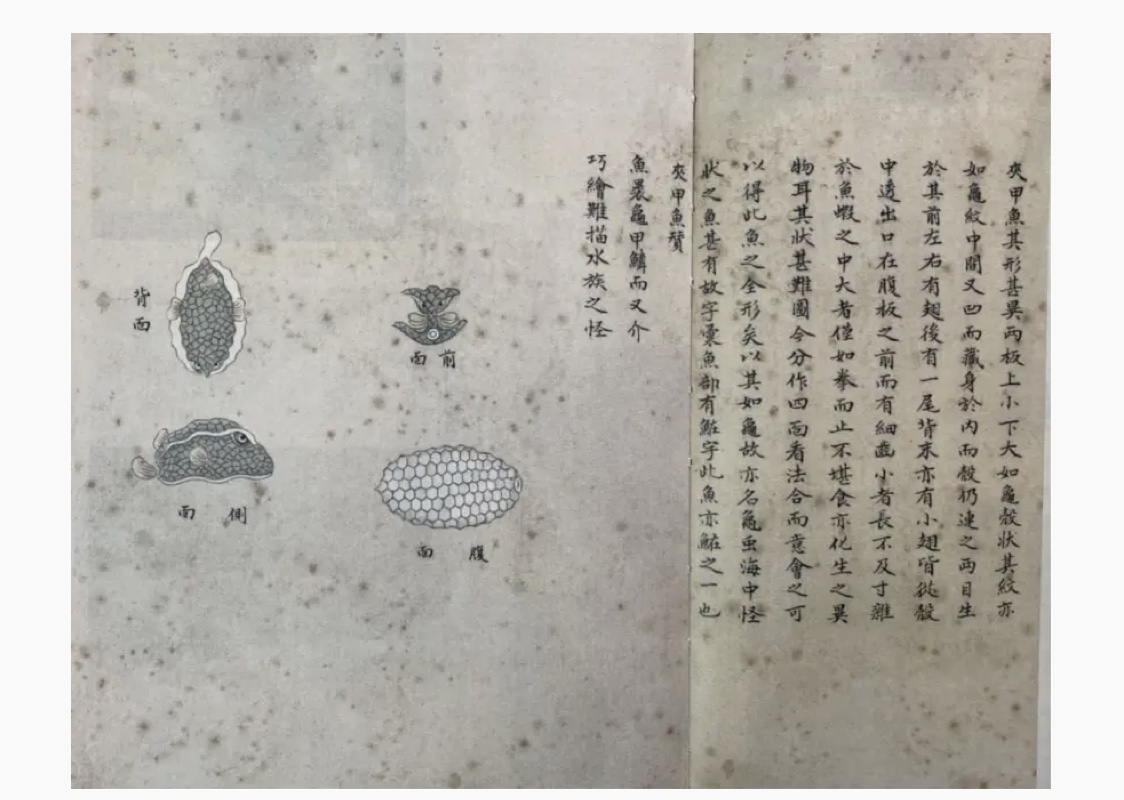 夾甲魚其形甚異兩板上小下大如龜殼狀其紋亦
如龜紋中間又凹而藏身於內而殼仍連之兩目生
於其前左右有翅後有一尾背末亦有小翅皆從殼
中透出口在腹板之前而有細齒小者長不及寸雜
於魚蝦之中大者僅如拳而止不堪食亦化生之異
物耳其狀甚難圖今分作四面看法合而意會之可
以得此魚之全形矣以其如龜故亦名龜魚海中怪
狀之魚甚有故字彙魚部有䱉字此魚亦䱉之一也
夾甲魚贊
魚裹龜甲鱗而又介
巧繪難描水族之怪
前面
背面
側面
腹面